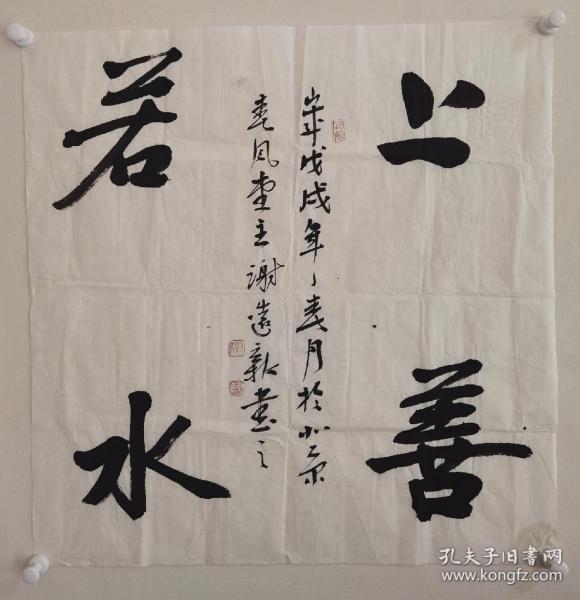 上善
若水
岁在戊戌年春月於北京
春风堂主谢远新书之
孔夫子旧书网
www.kongfz.com